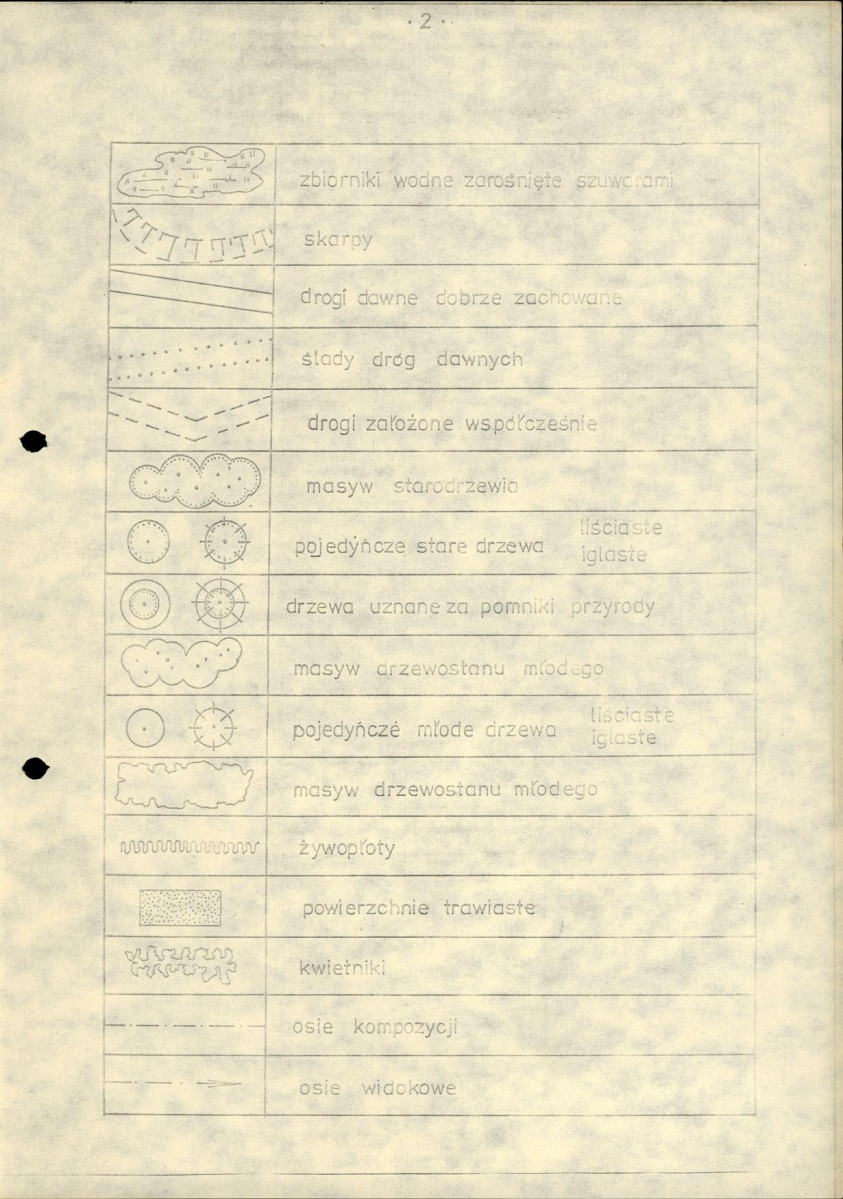 · 2 ·
zbiorniki wodne zarośnięte szuwarami
skarpy
drogi dawne dobrze zachowane
ślady dróg dawnych
drogi założone współcześnie
masyw starodrzewia
pojedyńcze stare drzewa liściaste
iglaste
drzewa uznane za pomniki przyrody
masyw drzewostanu młodego
pojedyńczé młode drzewa liściaste
iglaste
masyw drzewostanu młodego
żywopłoty
powierzchnie trawiaste
kwietniki
osie kompozycji
osie widokowe